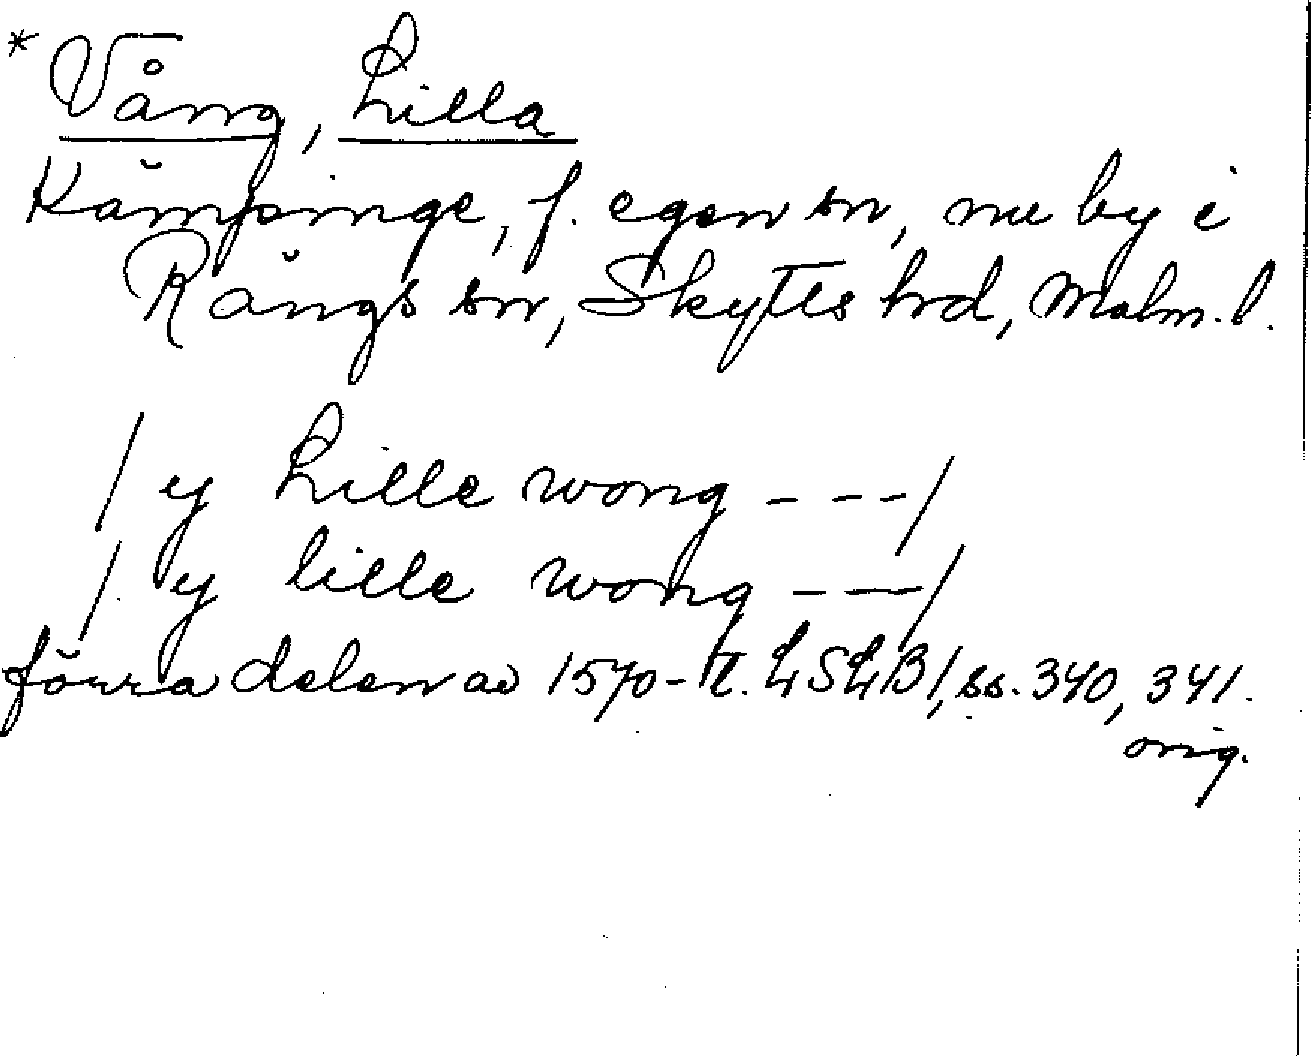 * Vång, Lilla
Kämpinge, f. egen sn, nu by i
Rängs sn, Skytts hrd, Malm. l.
/ y Lille wong - - - /
/ y lille wong - - - /
förra delen av 1570-t. LSLB 1, ss. 340, 341.
orig.